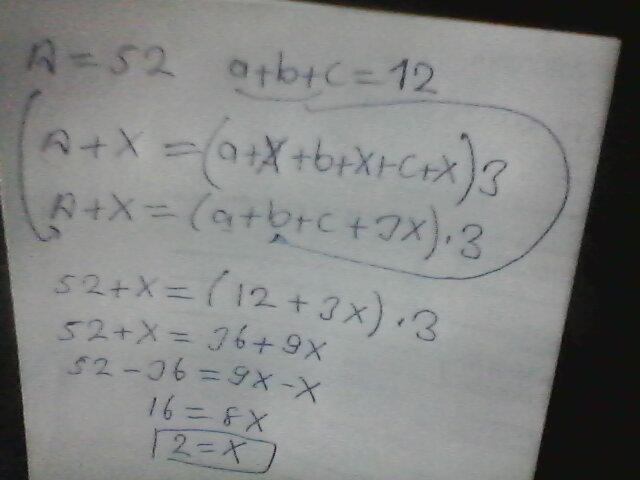 A = 52 a+b+c = 12
A+X = (a+X+b+X+c+X)3
A+X = (a+b+c+3X).3
52+X = (12+3X).3
52+X = 36+9X
52-36 = 9X-X
16 = 8X
2 = X